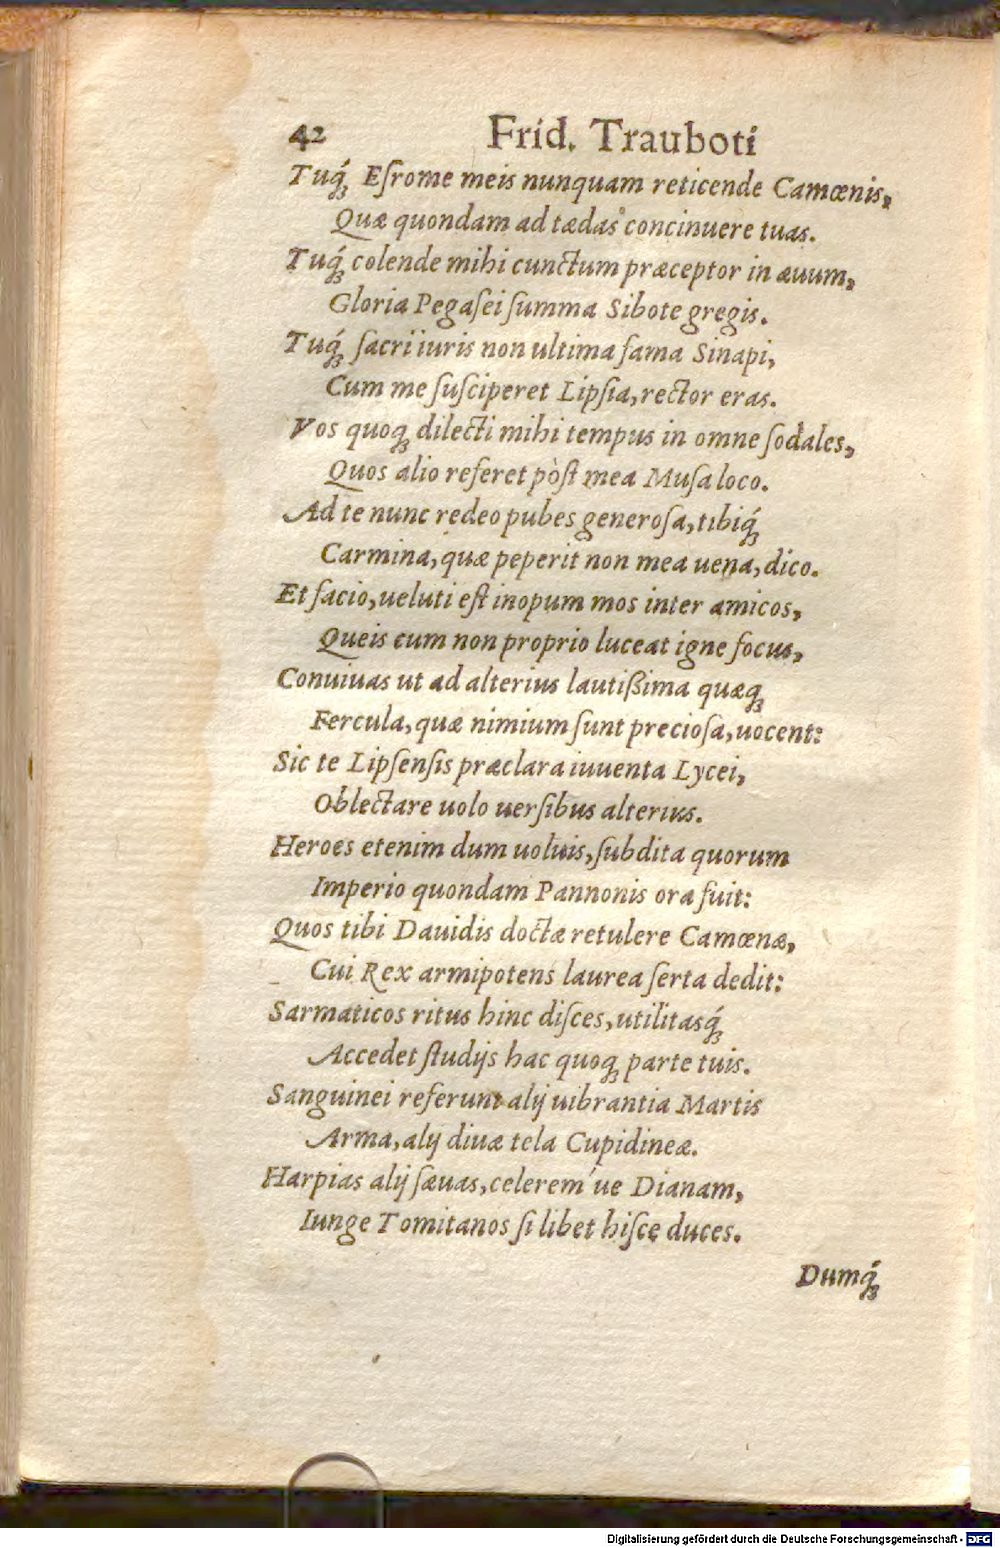 42 Frid. Trauboti
Tuq́ꝫ Eſrome meis nunquam reticende Camœnis,
Quæ quondam ad tædas concinuere tuas.
Tuq́ꝫ colende mihi cunctum præceptor in æuum,
Gloria Pegaſei ſumma Sibote gregis.
Tuq́ꝫ ſacri iuris non ultima fama Sinapi,
Cum me ſuſciperet Lipſia, rector eras.
Vos quoqꝫ dilecti mihi tempus in omne ſodales,
Quos alio referet pòſt mea Muſa loco.
Ad te nunc redeo pubes generoſa, tibiq́ꝫ
Carmina, quæ peperit non mea uena, dico.
Et facio, ueluti eſt inopum mos inter amicos,
Queis cum non proprio luceat igne focus,
Conuiuas ut ad alterius lautißima quæqꝫ
Fercula, quæ nimium ſunt precioſa, uocent:
Sic te Lipſenſis præclara iuuenta Lycei,
Oblectare uolo uerſibus alterius.
Heroes etenim dum uoluis, ſubdita quorum
Imperio quondam Pannonis ora fuit:
Quos tibi Dauidis doctæ retulere Camœnæ,
Cui Rex armipotens laurea ſerta dedit:
Sarmaticos ritus hinc diſces, utilitasq́ꝫ
Accedet ſtudijs hac quoqꝫ parte tuis.
Sanguinei referunt alij uibrantia Martis
Arma, alij diuæ tela Cupidineæ.
Harpias alij ſæuas, celerem'ue Dianam,
Iunge Tomitanos ſi libet hiſce duces.
Dumq́ꝫ
Digitalisierung gefördert durch die Deutsche Forschungsgemeinschaft - DFG